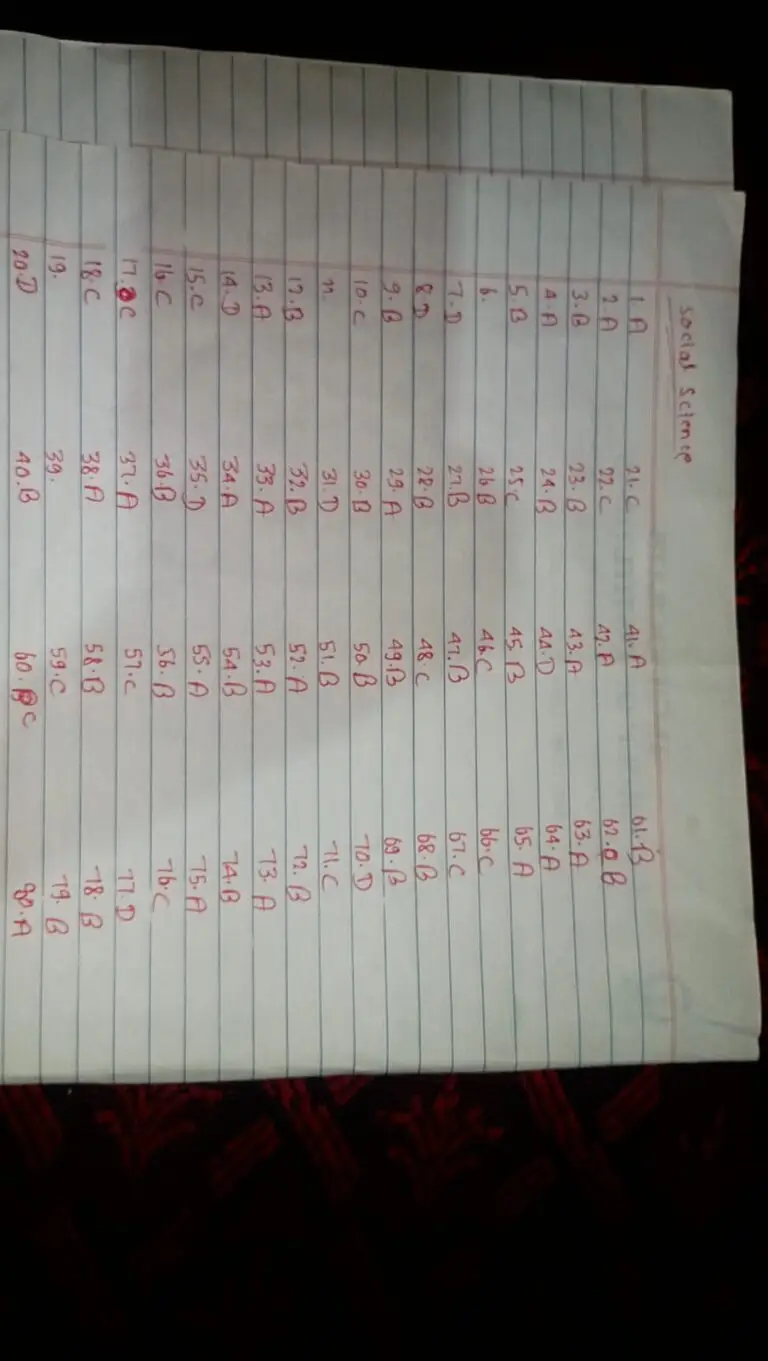 Social Science
1. A 21. C 41. A 61. B
2. A 22. C 42. A 62. B
3. B 23. B 43. A 63. A
4. A 24. B 44. D 64. A
5. B 25. C 45. B 65. A
6. 26. B 46. C 66. C
7. D 27. B 47. B 67. C
8. D 28. B 48. C 68. B
9. B 29. A 49. B 69. B
10. C 30. B 50. B 70. D
11. 31. D 51. B 71. C
12. B 32. B 52. A 72. B
13. A 33. A 53. A 73. A
14. D 34. A 54. B 74. B
15. C 35. D 55. A 75. A
16. C 36. B 56. B 76. C
17. C 37. A 57. C 77. D
18. C 38. A 58. B 78. B
19. 39. 59. C 79. B
20. D 40. B 60. C 80. A